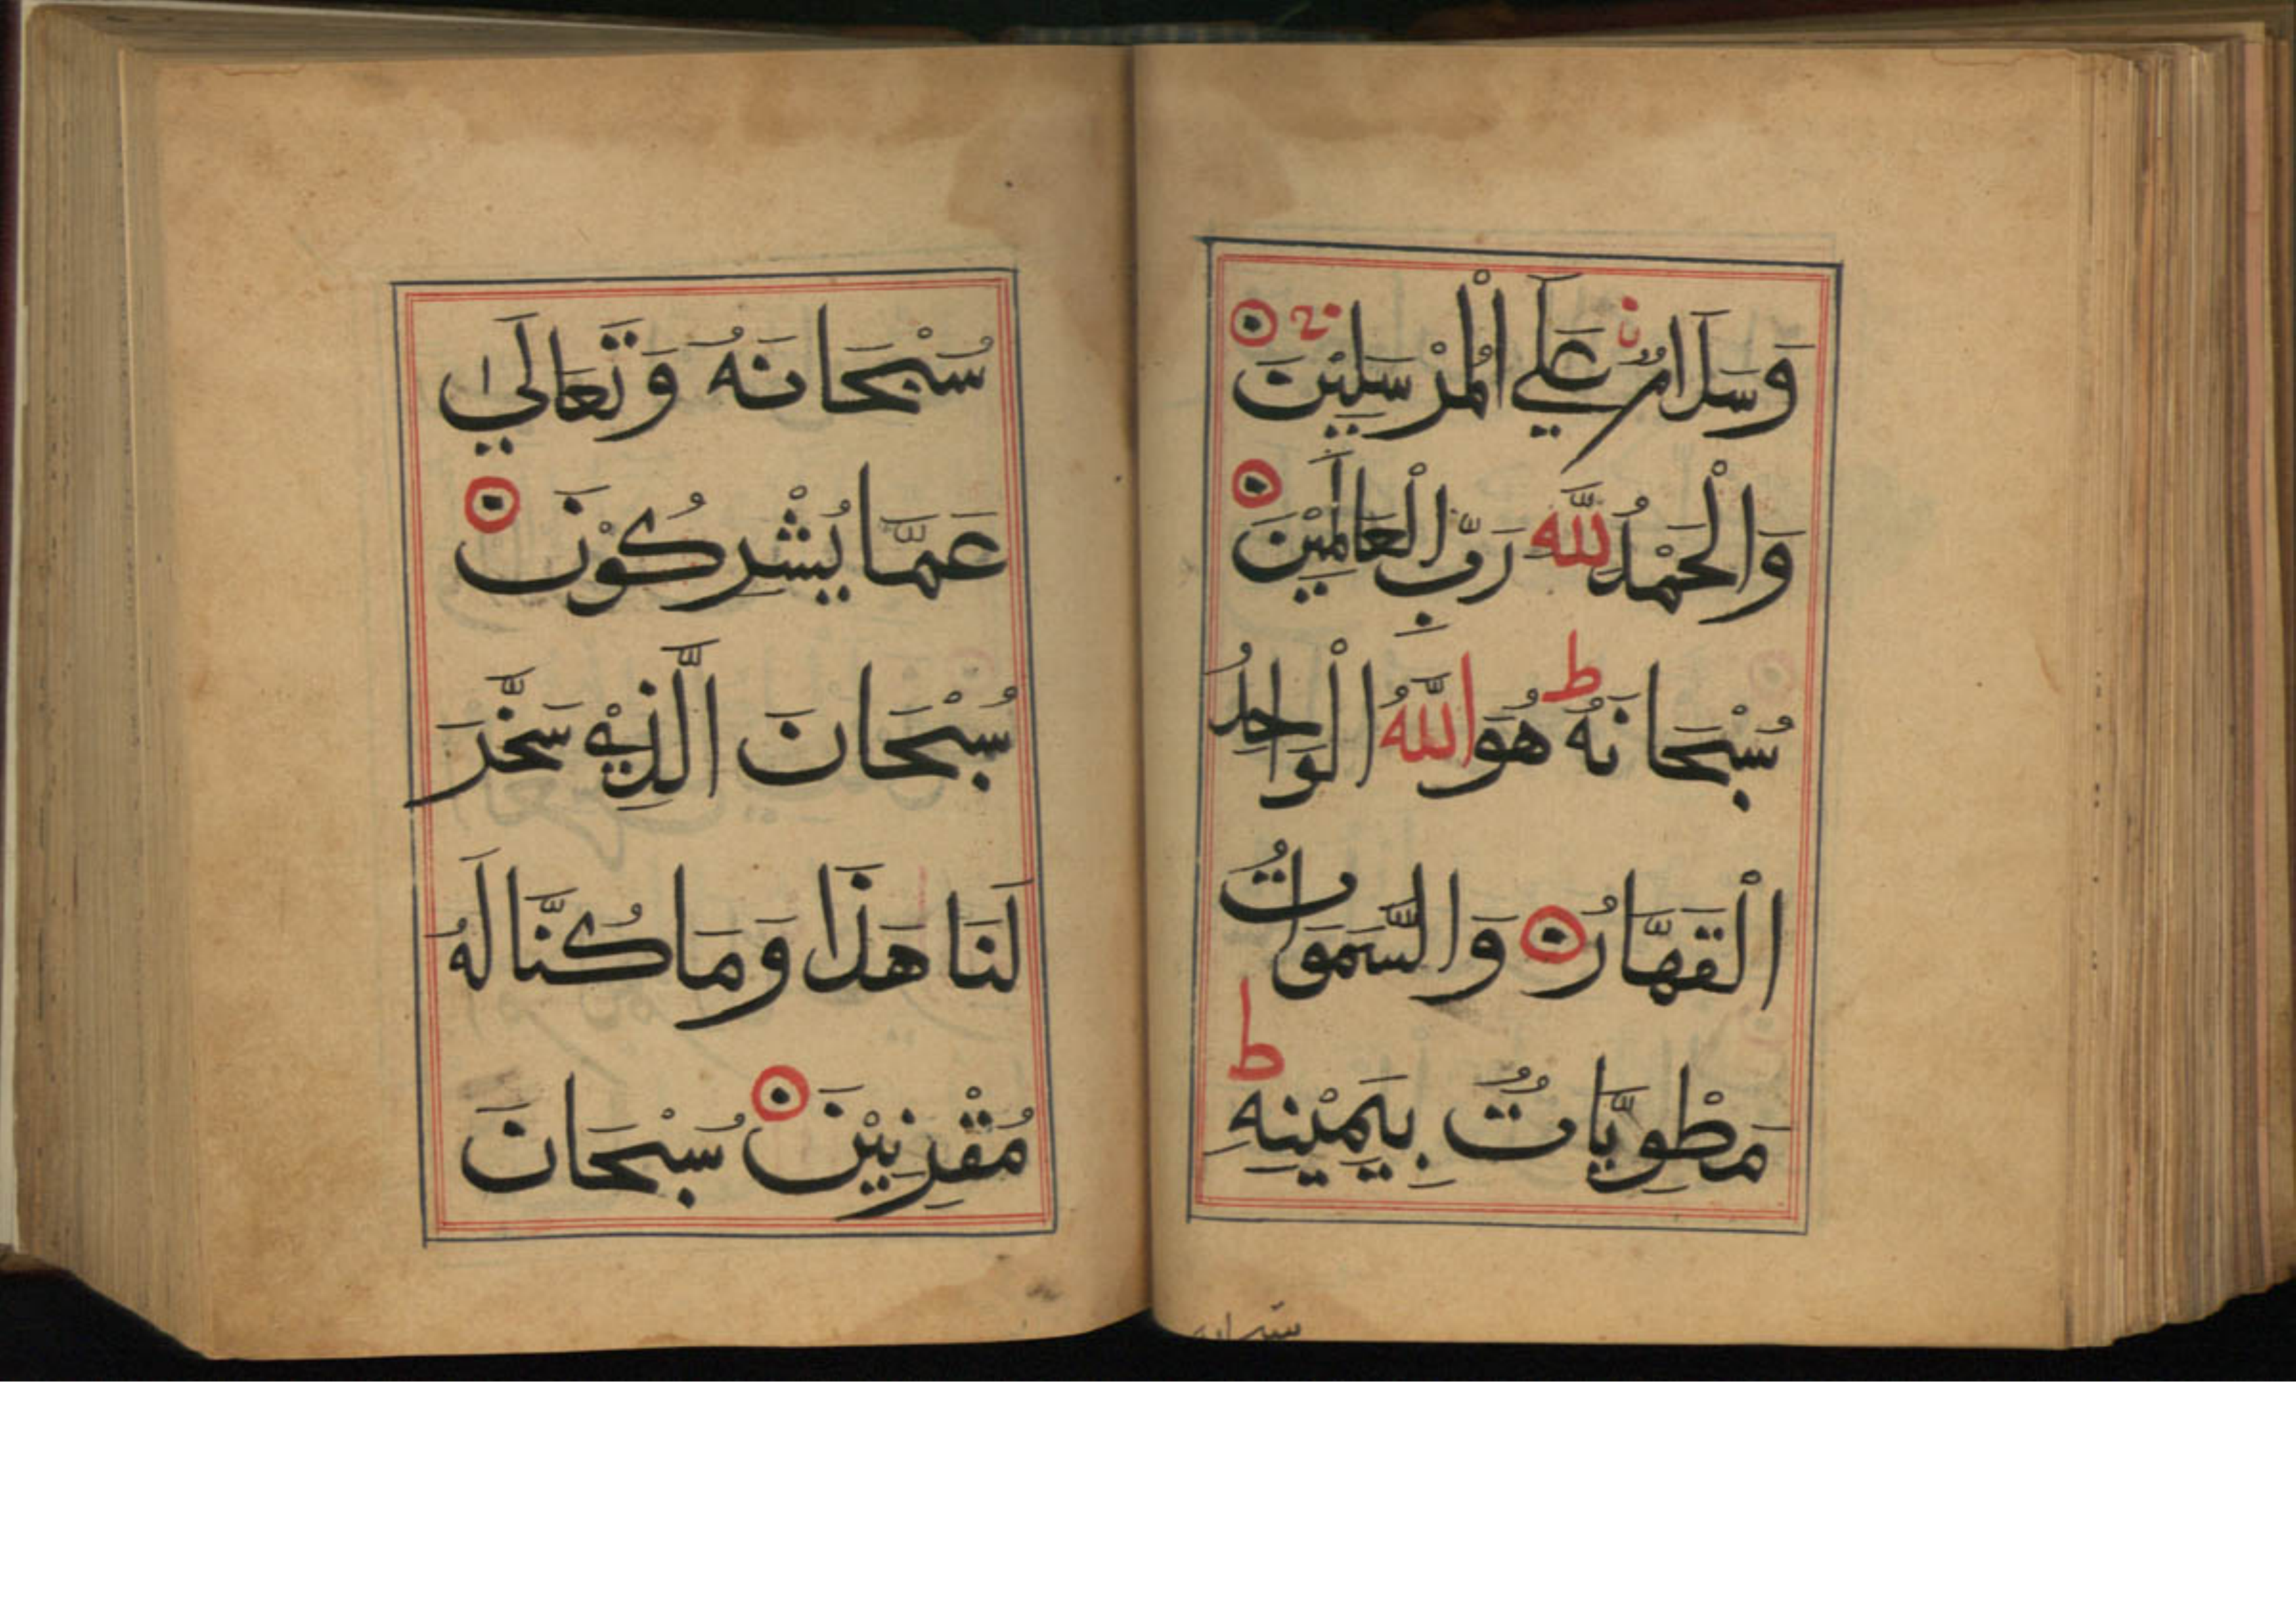 وَسَلَامٌ عَلَي الْمُرْسَلِيْنَ
وَالْحَمْدُ لِلّٰهِ رَبِّ الْعَالَمِيْنَ
سُبْحَانَهُ ط هُوَ اللّٰهُ الْوَاحِدُ
الْقَهَّارُ وَالسَّمَوَاتُ
مَطْوِيَّاتٌ بِيَمْيْنِهِ ط
سبحانه
سُبْحَانَهُ وَتَعَالَيٰ
عَمَّا يُشْرِكُوْنَ
سُبْحَانَ الَّذِيْ سَخَّرَ
لَنَا هَذَا وَمَا كُنَّا لَهُ
مُقْرِنِيْنَ سُبْحَانَ